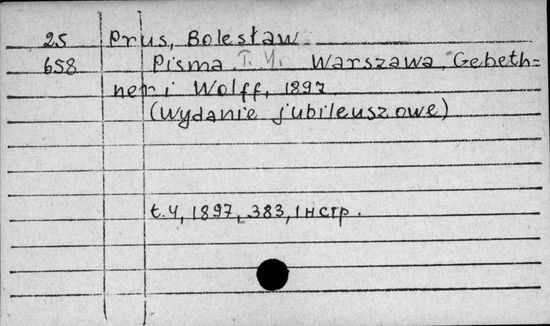 25 Prus, Bolesław
658 Pisma. T. 4. Warszawa, Gebeth=
ner i Wolff, 1897
(wydanie jubileuszowe)
t. 4, 1897, 383, 1 н стр.